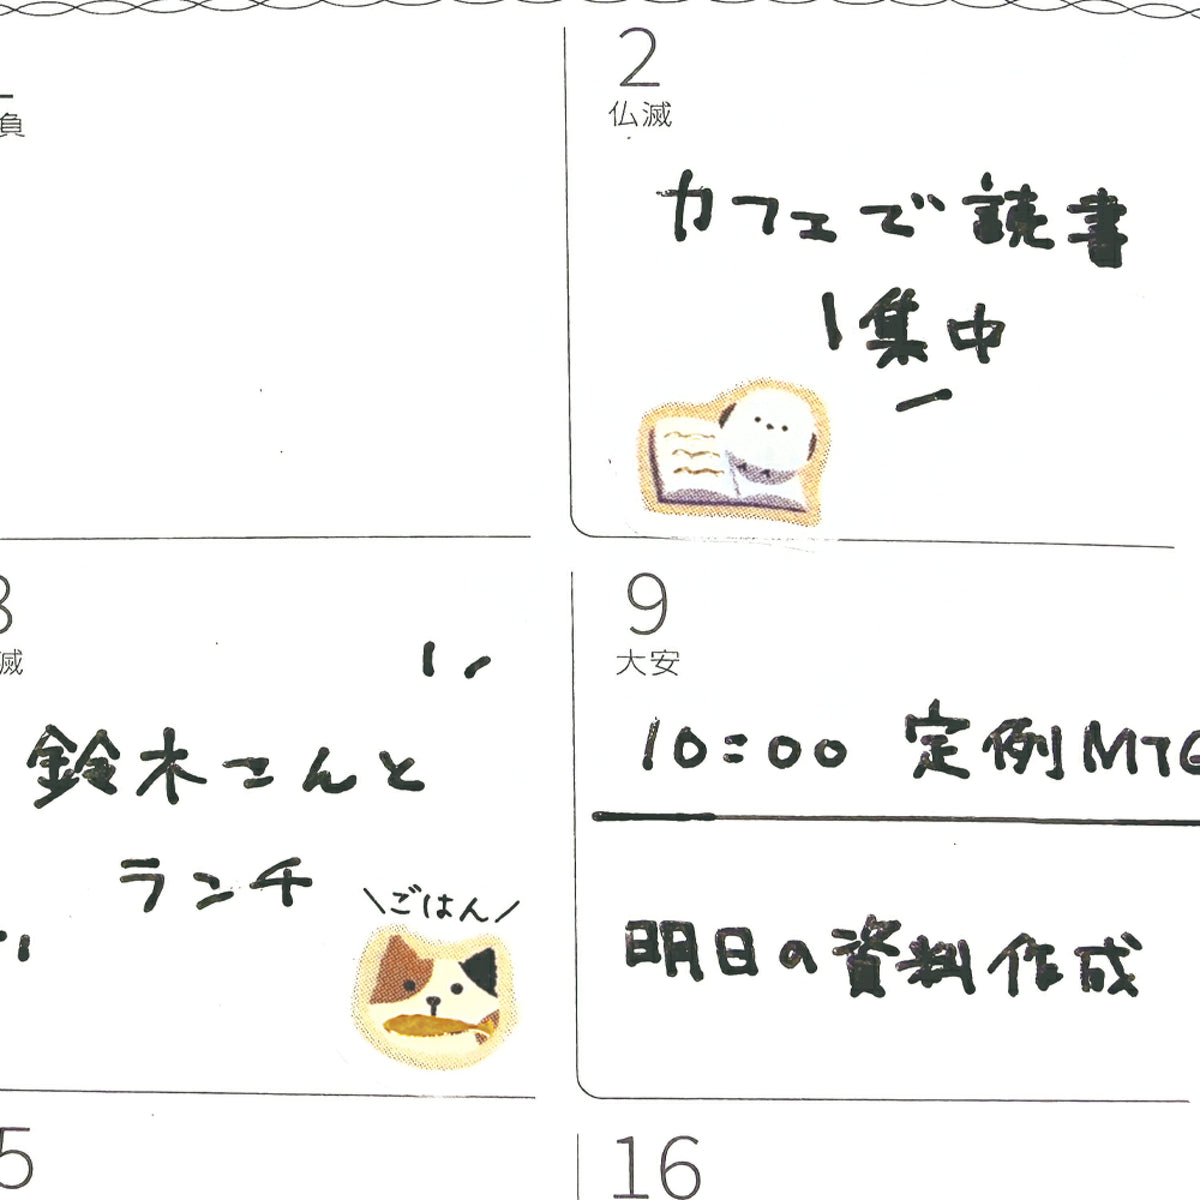 2
仏滅
カフェで読書
集中
8
滅
鈴木さんと
ランチ
ごはん
9
大安
10:00 定例MTG
明日の資料作成
5
16